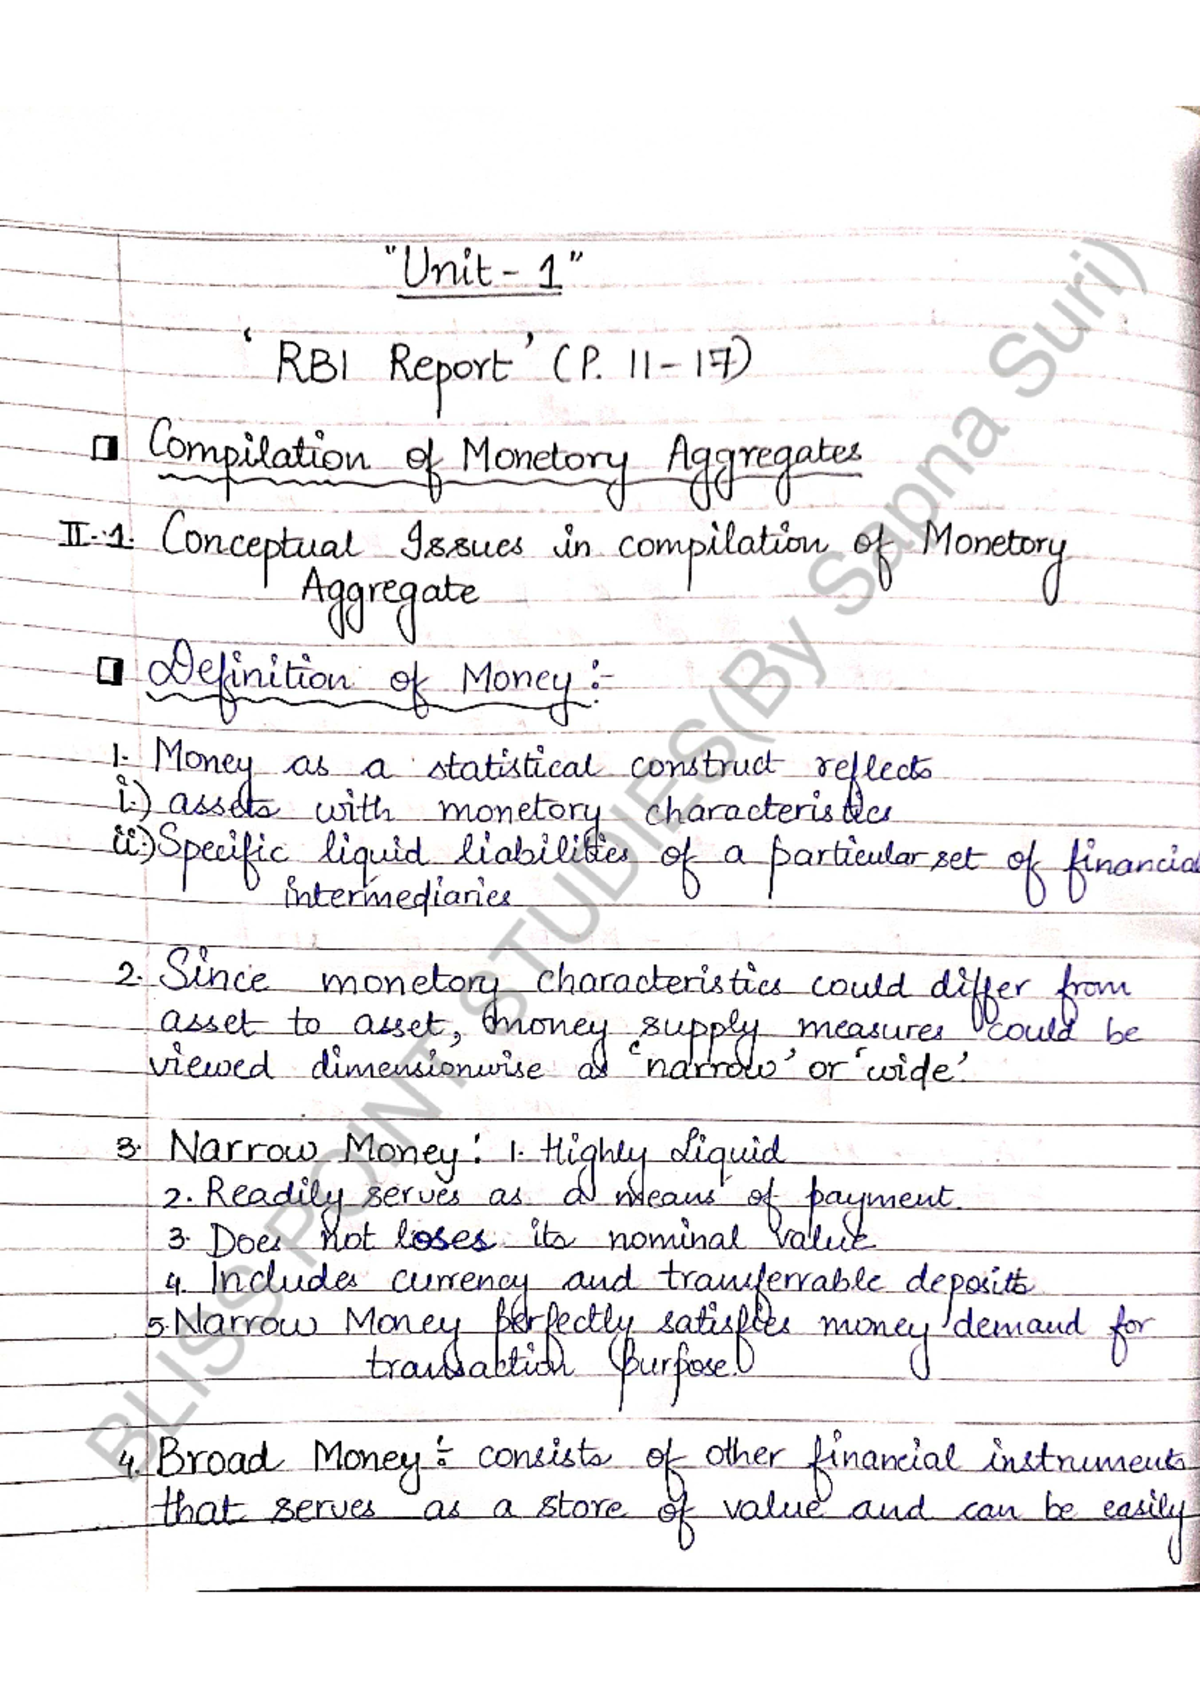 "Unit - 1"
'RBI Report' (P. 11 - 17)
Compilation of Monetory Aggregates
II.1. Conceptual Issues in compilation of Monetory
Aggregate
Definition of Money :-
1. Money as a statistical construct reflects
i.) assets with monetory characteristics
ii.) Specific liquid liabilities of a particular set of financial
intermediaries
2. Since monetory characteristics could differ from
asset to asset, money supply measures could be
viewed dimensionwise as 'narrow' or 'wide'.
3. Narrow Money : 1. Highly Liquid
2. Readily serves as a means of payment.
3. Does not loses its nominal value
4. Includes currency and transferrable deposits
5. Narrow Money perfectly satisfies money demand for
transaction purpose.
4. Broad Money :- consists of other financial instruments
that serves as a store of value and can be easily
BLISS POINT STUDIES(By Sapna Suri)